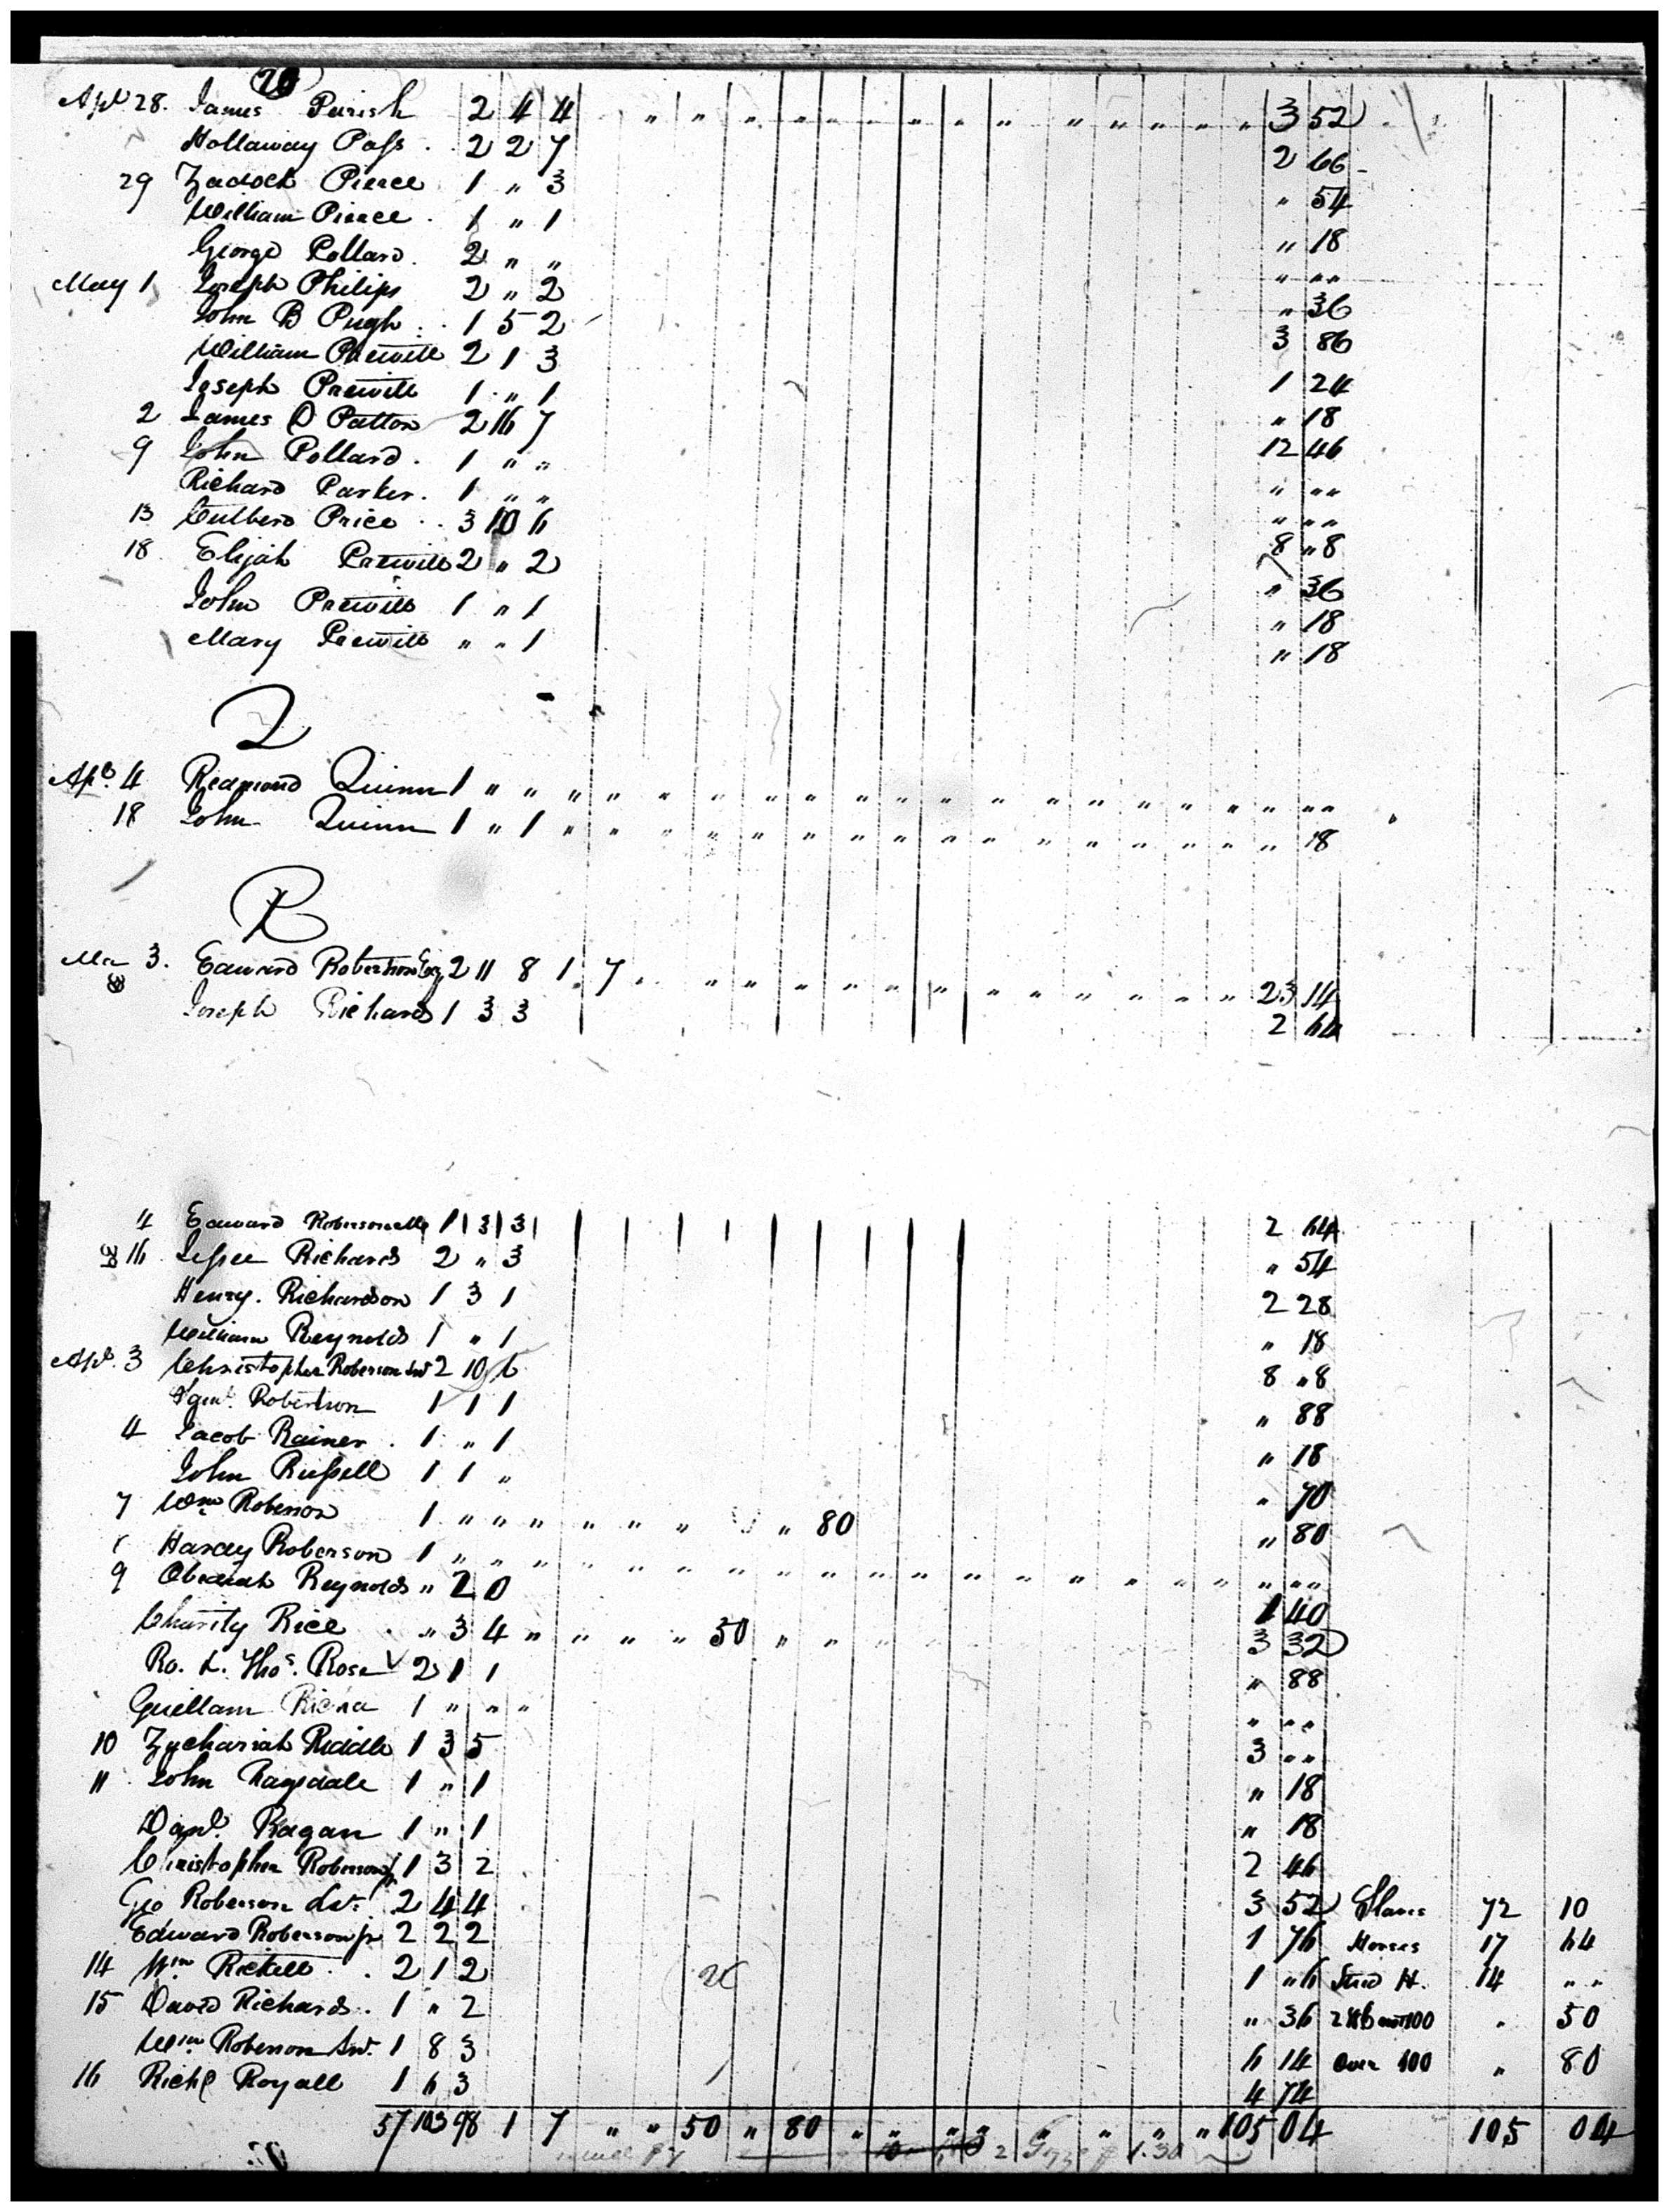 20
Apl 28. James Parish 2 4 4 " " " " " " " " " " " " " " 3 52
Hollaway Pass . 2 2 7 2 66
29 Zadock Pierce 1 " 3 " 54
William Pierce . 1 " 1 " 18
George Pollard . 2 " " " " "
May 1 Joseph Philips 2 " 2 " 36
John B Pugh . . 1 5 2 3 86
William Prewitt 2 1 3 1 24
Joseph Prewitt 1 " 1 " 18
2 James D Patton 2 16 7 12 46
9 John Pollard . 1 " " " " "
Richard Parker . 1 " " " " "
13 Cutberd Price . . 3 10 6 8 " 8
18 Elijah Prewitt 2 " 2 " 36
John Prewitt 1 " 1 " 18
Mary Prewitt " " 1 " 18
Q
Apl. 4 Redmond Quinn 1 " " " " " " " " " " " " " " " " " " " "
18 John Quinn 1 " 1 " " " " " " " " " " " " " " " " 18
R
Mar 3. Edward Robertson Esq 2 11 8 1 . 7 . " " " " " " " " " " " " 23 14
8 Joseph Richards 1 3 3 2 64
4 Edward Roberson 1 3 3 2 64
16 Jessee Richards 2 " 3 " 54
Henry . Richardson 1 3 1 2 28
William Reynolds 1 " 1 " 18
Apl. 3 Christopher Roberson Snr 2 10 6 8 " 8
Robertson 1 1 1 " 88
4 Jacob Rainer . 1 " 1 " 18
John Russell 1 1 " " 70
7 Wm Roberson 1 " " " " " " " 80 " 80
Hardy Roberson 1 " " " " " " " " " " " " " " " " " " " "
9 Obediah Reynolds " 2 0 1 40
Charity Rice . " 3 4 " " " " 50 " " 3 32
Ro. & Thos. Rose 2 1 1 " 88
Guellam 1 " " " " " "
10 Zychariah Riddle 1 3 5 3 " "
11 John Ragsdale 1 " 1 " 18
Danl. Ragan 1 " 1 " 18
Christopher Roberson jr 1 3 2 2 46
Geo Roberson Snr. 2 4 4 3 52 Slaves 72 10
Edward Roberson jr 2 2 2 1 76 Horses 17 64
14 Wm Rickett . . 2 1 2 1 " 6 Stud H. 14 " "
15 David Richards . 1 " 2 " 36 100 " 50
Wm Roberson Snr. 1 8 3 6 14 Over 100 " 80
16 Richd Royall 1 6 3 4 74
57 103 98 1 7 " " 50 " 80 " " " " " " " " 105 04 105 04